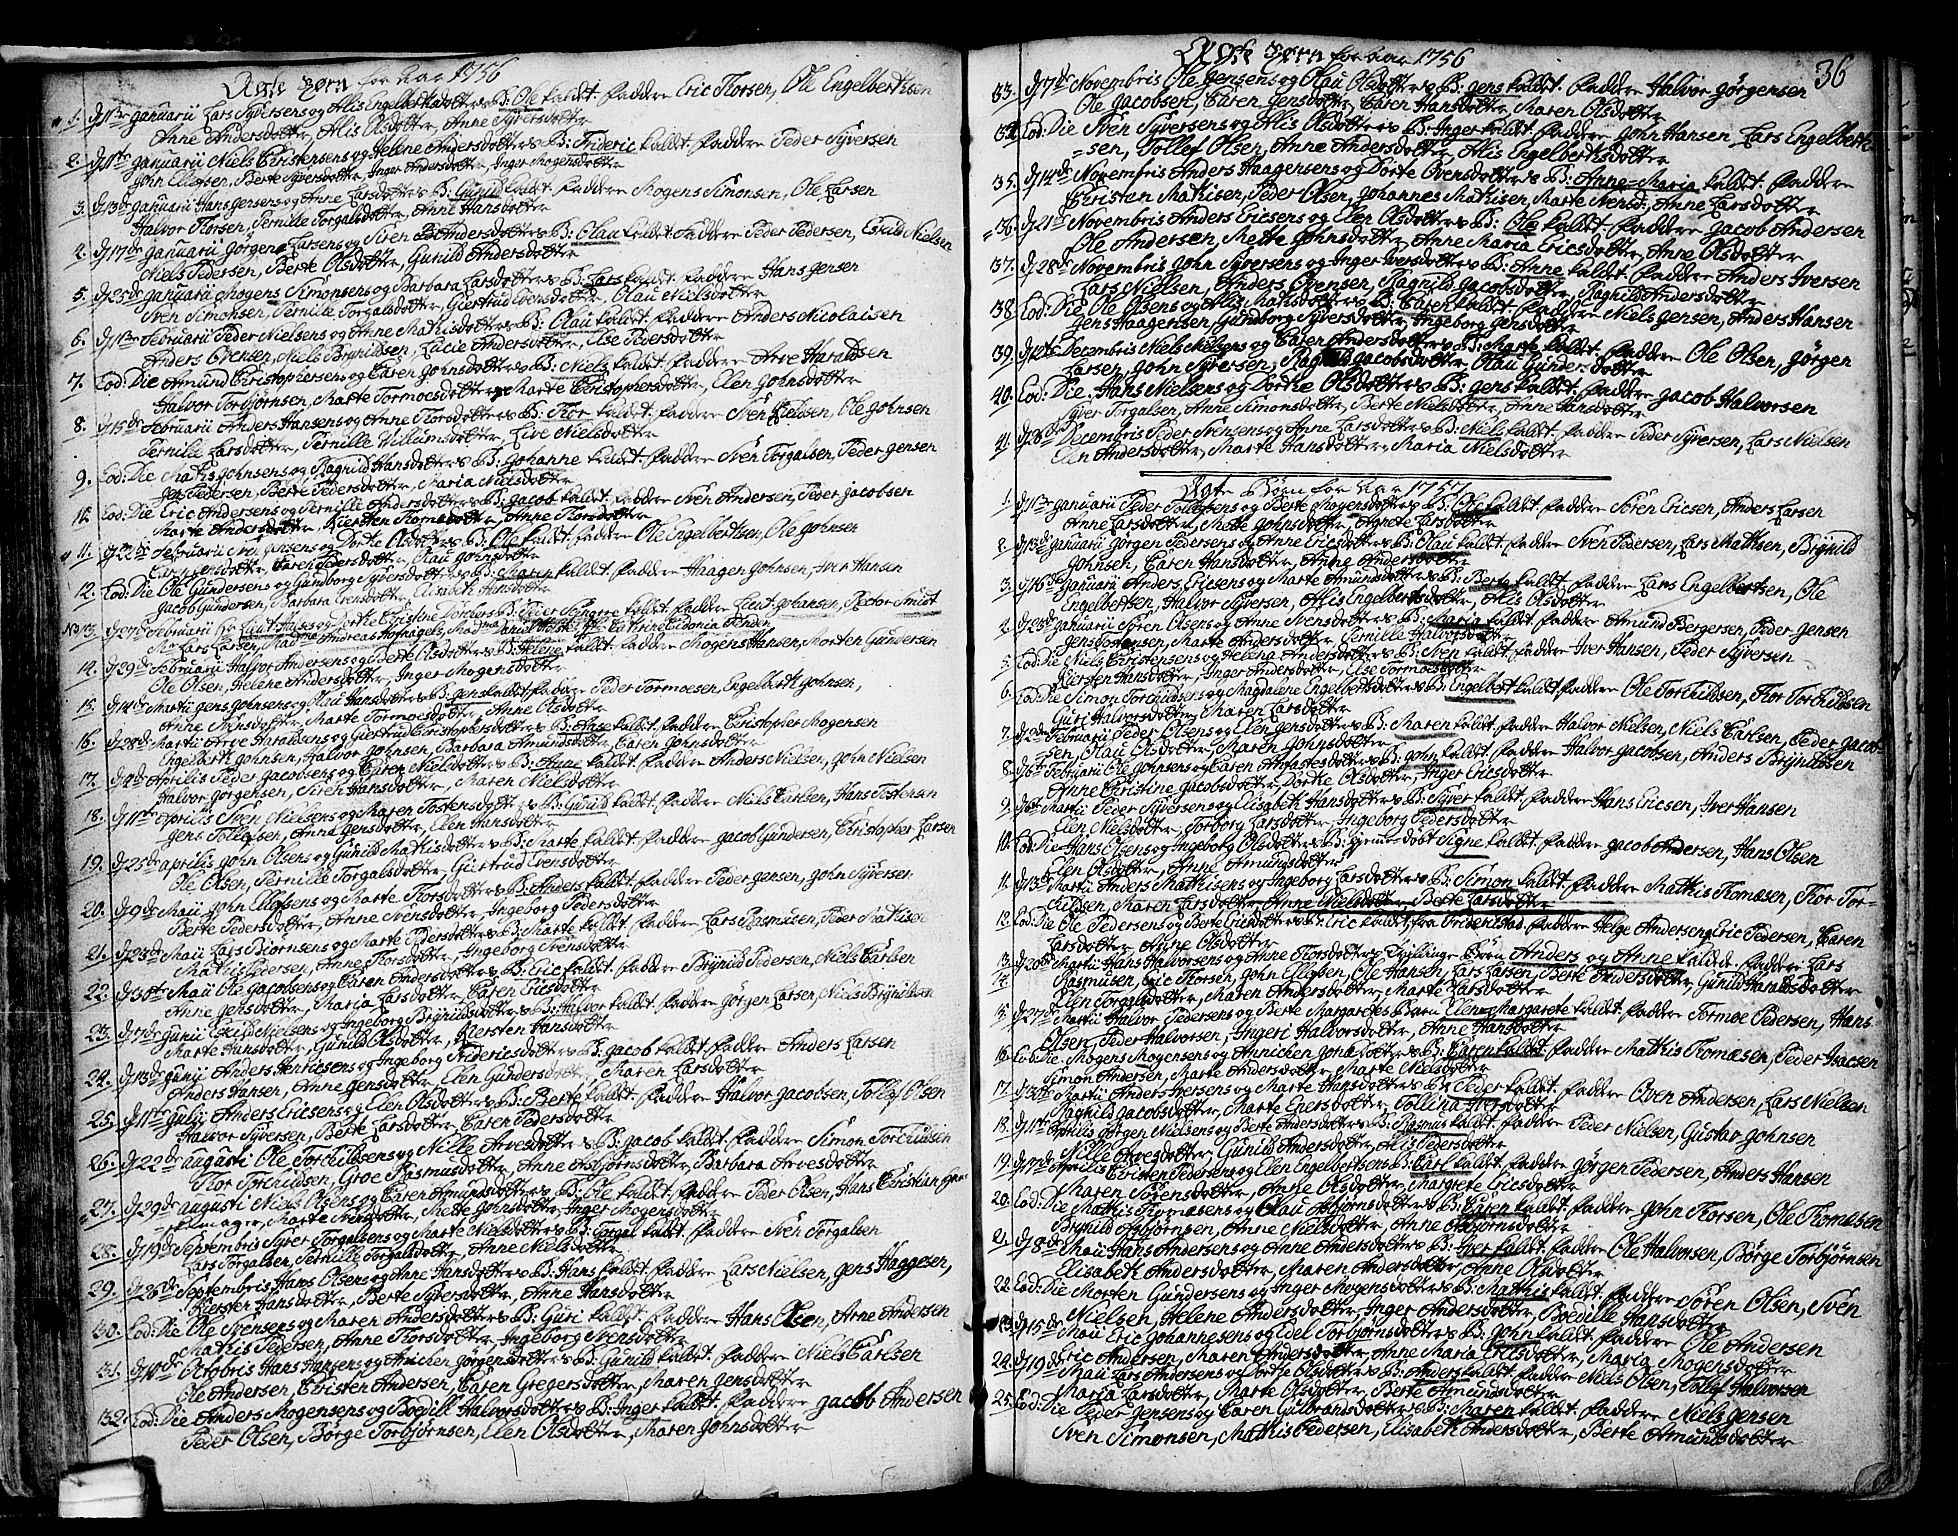 Ægte Børn for Aar 1756
1. d. 11te Januarii Lars Syversens og Alis Engelbertsdotters B: Ole kaldt. Faddere Eric Thorsen, Ole Engelberthsen
Anne Andersdotter, Alis Olsdotter, Anne Syversdotter
2. Januarii Niels Christensens og Helene Andersdotters B: Frideric kaldt. Faddere Peder Syversen
John Ellefsen, Berte Syversdotter, Inger Andersdotter, Inger Mogensdotter
3. Januarii Hans Jensens og Anne Larsdotters B: Gunild kaldt. Faddere Mogens Simonsen, Ole Larsen
Halvor Thorsen, Pernille Torgalsdotter, Anne Hansdotter
4. d. 17de Januarii Jørgen Larsens og Siren Andersdotters B: Olau kaldt. Faddere Peder Pedersen, Eskild Nielsen
Niels Pedersen, Berte Olsdotter, Gunild Andersdotter
5. d. 25de Januarii Mogens Simonsens og Barbara Larsdotters B: Lars kaldt. Faddere Hans Jensen
Sven Simonsen, Pernille Torgalsdotter, Giertrud Evensdotter, Olau Nielsdotter
6. Februarii Peder Nielsens og Anne Mathisdotters B: Olau kaldt. Faddere Anders Nicolaisen
Anders Evensen, Niels Brynildsen, Lucie Andersdotter, Else Iversdotter
7. Eod: Die Amund Christophersens og Caren Johnsdotters B: Niels kaldt. Faddere Arve Haraldsen
Halvor Torbjørnsen, Marte Tormoesdotter, Marte Christophersdotter, Elen Johnsdotter
8. d. 15de Februarii Anders Hansens og Anne Thorsdotters B: Thor kaldt. Faddere Sven Nielsen, Ole Johnsen
Pernille Larsdotter, Pernille Villumsdotter, Live Nielsdotter
9. Eod: Die Mathis Johnsens og Ragnild Hansdotters B: Johanne kaldt. Faddere Sven Torgalsen, Peder Jensen
Jens Pedersen, Berte Pedersdotter, Maria Nielsdotter
10. Eod: Die Eric Andersens og Pernille Andersdotters B: Jacob kaldt. Faddere Sven Andersen, Peder Jacobsen
Marte Andersdotter, Kiersten Thomasdotter, Anne Thorsdotter
11. d. 22de Februarii Sven Jensens og Dorte Olsdotters B: Ole kaldt. Faddere Ole Engelberthsen, Ole Johnsen
Caren Pedersdotter, Olau Johnsdotter
12. Eod: Die Ole Gundersens og Gundborg Syversdotters B: Maren kaldt. Faddere Haagen Johnsen, Iver Hansen
Jacob Gundersen, Barbara Evensdotter, Elisabeth Hansdotter
13. d. 27de Februarii
14. d. 29de Februarii Halvor Andersens og Berte Olsdotters B: Helene kaldt. Faddere Mogens Hansen, Morten Gundersen
Ole Olsen, Helene Andersdotter, Inger Mogensdotter
15. d. 14de Martii Jens Johnsens og Olau Hansdotters B: Jens kaldt. Faddere Peder Tormoesen, Engelberth Johnsen,
Anne Svensdotter, Marte Tormoesdotter, Anne Olsdotter
16. d. 28de Martii Arve Haraldsens og Giertrud Christophersdotters B: Anne kaldt. Faddere Christopher Mogensen
Engelberth Johnsen, Halvor Johnsen, Barbara Amundsdotter, Caren Johnsdotter
17. Aprilis Peder Jacobsens og Caren Nielsdotters B: Anne kaldt. Faddere Anders Nielsen, John Nielsen
Halvor Jørgensen, Siren Hansdotter, Maren Nielsdotter
18. d. 11te Aprilis Sven Nielsens og Maren Tostensdotters B: Gunild kaldt. Faddere Niels Carlsen, Hans Tostensen
Jens Tollefsen, Anne Jensdotter, Elen Hansdotter
19. d. 25de Aprilis John Olsens og Gunild Mathisdotters B: Marte kaldt. Faddere Jacob Gundersen, Christopher Larsen
Ole Olsen, Pernille Torgalsdotter, Giertrud Evensdotter
20. d. 9de Maii John Ellefsens og Marte Thorsdotters B: Anders kaldt. Faddere Peder Jensen, John Syversen
Berte Pedersdotter, Anne Svensdotter, Ingeborg Pedersdotter
21. d. 23de Maii Lars Bjørnsens og Marte Pedersdotters B: Marte kaldt. Faddere Lars Rasmusen, Peder Mathisen
Mathis Pedersen, Anne Thorsdotter, Ingeborg Svensdotter
22. d. 30te Maii Ole Jacobsens og Caren Andersdotters B: Eric kaldt. Faddere Brynild Pedersen, Niels Carlsen
Anne Jensdotter, Maria Larsdotter, Caren Ericsdotter
23. Junii Eskild Nielsens og Ingeborg Brynildsdotters B: Halvor kaldt. Faddere Jørgen Larsen, Niels Brynildsen
Marte Hansdotter, Gunild Olsdotter, Kiersten Hansdotter
24. d. 13de Junij Anders Henricsens og Ingeborg Fridericsdotters B: Jacob kaldt. Faddere Anders Larsen
Anders Hansen, Anne Jensdotter, Elen Gundersdotter, Maren Larsdotter
25. d. 11te Julij Anders Ericsens og Elen Olsdotters B: Berte kaldt. Faddere Halvor Jacobsen, Tollef Olsen
Halvor Syversen, Berte Larsdotter, Caren Pedersdotter
26. d. 22de Augusti Ole Torchildsens og Nille Arvesdotters B: Jacob kaldt. Faddere Simon Torchildsen
Thor Torchildsen, Groe Rasmusdotter, Anne Asbjørnsdotter, Barbara Arvesdotter
27. d. 29de Augusti Niels Olsens og Caren Amundsdotters B: Ole kaldt. Faddere Peder Olsen, Hans Christian
Marte Nielsdotter, Mette Johnsdotter, Inger Mogensdotter
28. d. 19de Septembris Syver Torgalsens og Marte Nielsdotters B: Torgal kaldt. Faddere Sven Torgalsen
Lars Torgalsen, Pernille Torgalsdotter, Anne Nielsdotter
29. d. 26de Septembris Hans Olsens og Anne Hansdotters B: Hans kaldt. Faddere Lars Nielsen, Jens Haagesen,
Kiersten Hansdotter, Berte Syversdotter, Anne Hansdotter
30. Eod: Die Ole Svensens og Maren Andersdotters B: Guri kaldt. Faddere Hans Olsen, Arne Andersen
Mathis Pedersen, Anne Thorsdotter, Ingeborg Svensdotter
31. Octobris Hans Hansens og Anichen Jørgensdotters B: Gunild kaldt. Faddere Niels Carlsen
Ole Andersen, Christen Andersen, Caren Gregersdotter, Maren Jensdotter
32. Eod: Die Anders Mogensens og Boedill Halvorsdotters B: Inger kaldt. Faddere Jacob Andersen
Peder Olsen, Børge Torbjørnsen, Elen Olsdotter, Maren Johnsdotter
Ægte Børn for Aar 1756
36
33. d. 7de Novembris Ole Jensens og Olau Olsdotters B: Jens kaldt. Faddere Halvor Jørgensen
Ole Jacobsen, Caren Jensdotter, Caren Hansdotter, Maren Olsdotter
34. Eod: Die Sven Syversens og Alis Olsdotters B: Inger kaldt. Faddere John Hansen, Lars Engelberth-
sen, Tollef Olsen, Anne Andersdotter, Alis Engelberthsdotter
35. d. 14de Novembris Anders Haagensens og Dorte Evensdotters B: Anne-Maria kaldt. Faddere
Christen Mathisen, Peder Olsen, Johannes Mathisen, Marte Nersd:, Anne Larsdotter
36. d. 21de Novembris Anders Ericsens og Elen Olsdotters B: Ole kaldt. Faddere Jacob Andersen
Ole Andersen, Mette Johnsdotter, Anne Maria Ericsdotter, Anne Olsdotter
37. d. 28de Novembris John Syversens og Inger Iversdotters B: Anne kaldt. Faddere Anders Iversen
Lars Nielsen, Anders Evensen, Ragnild Jacobsdotter, Ragnild Andersdotter
38. Eod: Die Ole Olsens og Alis Mathisdotters B: Caren kaldt. Faddere Niels Jensen, Anders Hansen
Jens Haagensen, Gundborg Syversdotter, Ingeborg Jensdotter
39. Decembris Niels Nielsens og Caren Andersdotters B: Marte kaldt. Faddere Ole Olsen, Jørgen
Larsen, John Syversen, Ragnild Jacobsdotter, Olau Gundersdotter
40. Eod: Die Hans Nielsens og Dorthe Olsdotters B: Jens kaldt. Faddere Jacob Halvorsen
Syver Torgalsen, Anne Simonsdotter, Berte Nielsdotter, Anne Hansdotter
41. Decembris Peder Svensens og Anna Larsdotters B: Niels kaldt. Faddere Peder Syversen, Lars Nielsen
Elen Andersdotter, Marte Hansdotter, Maria Nielsdotter
Ægte Børn for Aar 1757
1. Januarii Peder Tollefsens og Berte Mogensdotters B: Ole kaldt. Faddere Søren Ericsen, Anders Larsen
Anne Larsdotter, Mette Johnsdotter, Agnete Larsdotter
2. Januarii Jørgen Pedersens og Anne Ericsdotters B: Olau kaldt. Faddere Sven Pedersen, Lars Mathsen, Brynild
Johnsen, Caren Hansdotter, Anne Andersdotter
3. d. 16de Januarii Anders Ericsens og Marte Amundsdotters B: Berte kaldt. Faddere Lars Engelbertsen, Ole
Engelbertsen, Halvor Syversen, Alis Engelbertsdotter, Alis Olsdotter
Januarii Søren Olsens og Anne Svensdotters B: Maria kaldt. Faddere Amund Bergersen, Peder Jensen
Marte Andersdotter, Pernille Halvorsdotter
5. Eod: Die Niels Christensens og Helena Andersdotters B: Sven kaldt. Faddere Iver Hansen, Peder Syversen
Kiersten Hansdotter, Inger Andersdotter, Else Tormoesdotter
6. Eod: Die Simon Torchildsens og Magdalene Engelbertsdotters B: Engelbert kaldt. Faddere Ole Torchildsen, Thor Torchildsen
Guri Halvorsdotter, Maren Larsdotter
7. Februarii Peder Olsens og Elen Jensdotters B: Maren kaldt. Faddere Halvor Nielsen, Niels Carlsen, Peder Jacob-
sen, Olau Olsdotter, Maren Johnsdotter
8. Februarii Ole Johnsens og Caren B: John kaldt. Faddere Halvor Jacobsen, Anders Brynildsen
Anne Christine Jacobsdotter, Dorthe Olsdotter, Inger Ericsdotter
9. Martii Peder Syversens og Elisabeth Hansdotters B: Syver kaldt. Faddere Hans Ericsen, Iver Hansen
Elen Nielsdotter, Torborg Larsdotter, Ingeborg Pedersdotter
10. Eod: Die Hans Olsens og Ingeborg Olsdotters B: hjemmedøbt Signe kaldt. Faddere Jacob Andersen, Hans Olsen
Elen Olsdotter, Anne Amundsdotter
11. d. 13de Martii Anders Mathisens og Ingeborg Larsdotters B: Simon kaldt. Faddere Mathis Thomæsen, Thor Tor-
childsen, Maren Larsdotter, Anne Nielsdotter, Berte Larsdotter
12. Eod: Die Ole Pedersens og Berte Ericsdotters B: Eric kaldt, fra Friderichstad. Faddere Helge Andersen, Eric Pedersen, Caren
Larsdotter, Anne Olsdotter
13. d. 20de Martii Hans Halvorsens og Anne Thorsdotters Tvillinge Børn Anders og Anne kaldt. Faddere Lars
14. Rasmusen, Eric Thorsen, John Ellefsen, Ole Hansen, Lars Larsen, Berte Andersdotter, Gunild Haraldsdotter
Elen Torgalsdotter, Maren Andersdotter, Marte Larsdotter
15. d. 27de Martii Halvor Pedersens og Berte Margaretes Barn Elen-Margarete kaldt. Faddere Tormoe Pedersen, Hans
Olsen, Peder Halvorsen, Ingeri Halvorsdotter, Anne Hansdotter
16. Eod: Die Mogens Mogensens og Annichen B: Caren kaldt. Faddere Mathis Thomæsen, Peder Isacsen
Simon Andersen, Marte Andersdotter, Marte Nielsdotter
17. Martii Anders Iversens og Marte Hansdotters B: Peder kaldt. Faddere Even Andersen, Lars Nielsen
Ragnild Jacobsdotter, Marte Enersdotter, Tollina Iversdotter
18. d. 11te Aprilis Jørgen Nielsens og Berte Andersdotters B: Rasmus kaldt. Faddere Peder Nielsen, Gustav Johnsen
Nille Arvesdotter, Gunild Andersdotter, Alis Pedersdotter
19. d. 17de Aprilis Christen Pedersens og Elen Engelbertsens B: Carl kaldt. Faddere Jørgen Pedersen, Anders Hansen
Maren Sørensdotter, Anne Olsdotter, Margrete Ericsdotter
20. Eod: Die Mathis Thomæsens og Olau Asbjørnsdotters B: Caren kaldt. Faddere John Thorsen, Ole Thomæsen
Brynild Asbjørnsen, Anne Nielsdotter, Anne Asbjørnsdotter
21. d. 8de Maii Hans Andersens og Anne Andersdotters B: Iver kaldt. Faddere Ole Halvorsen, Børge Torbjørnsen
Elisabeth Andersdotter, Maren Andersdotter, Anne Olsdotter
22. Eod: Die Morten Gundersens og Inger Mogensdotters B: Mathis kaldt. Faddere Søren Olsen, Sven
Nielsen, Helene Andersdotter, Inger Andersdotter, Boedille Hansdotter
23. d. 15de Maii Eric Johannesens og Edel Torbjørnsdotters B: John kaldt. Faddere Ole Andersen
Eric Andersen, Maren Andersdotter, Anne Maria Ericsdotter, Maria Mogensdotter
24. d. 19de Maii Lars Andersens og Dortje Olsdotters B: Anders kaldt. Faddere Niels Olsen, Tollef Halvorsen
Maria Larsdotter, Marte Olsdotter, Berte Amundsdotter
25. Eod: Die Peder Jensens og Caren Gulbrandsdotters B: Maren kaldt. Faddere Niels Jensen
Sven Simonsen, Mathis Pedersen, Elisabeth Andersdotter, Berte Amundsdotter